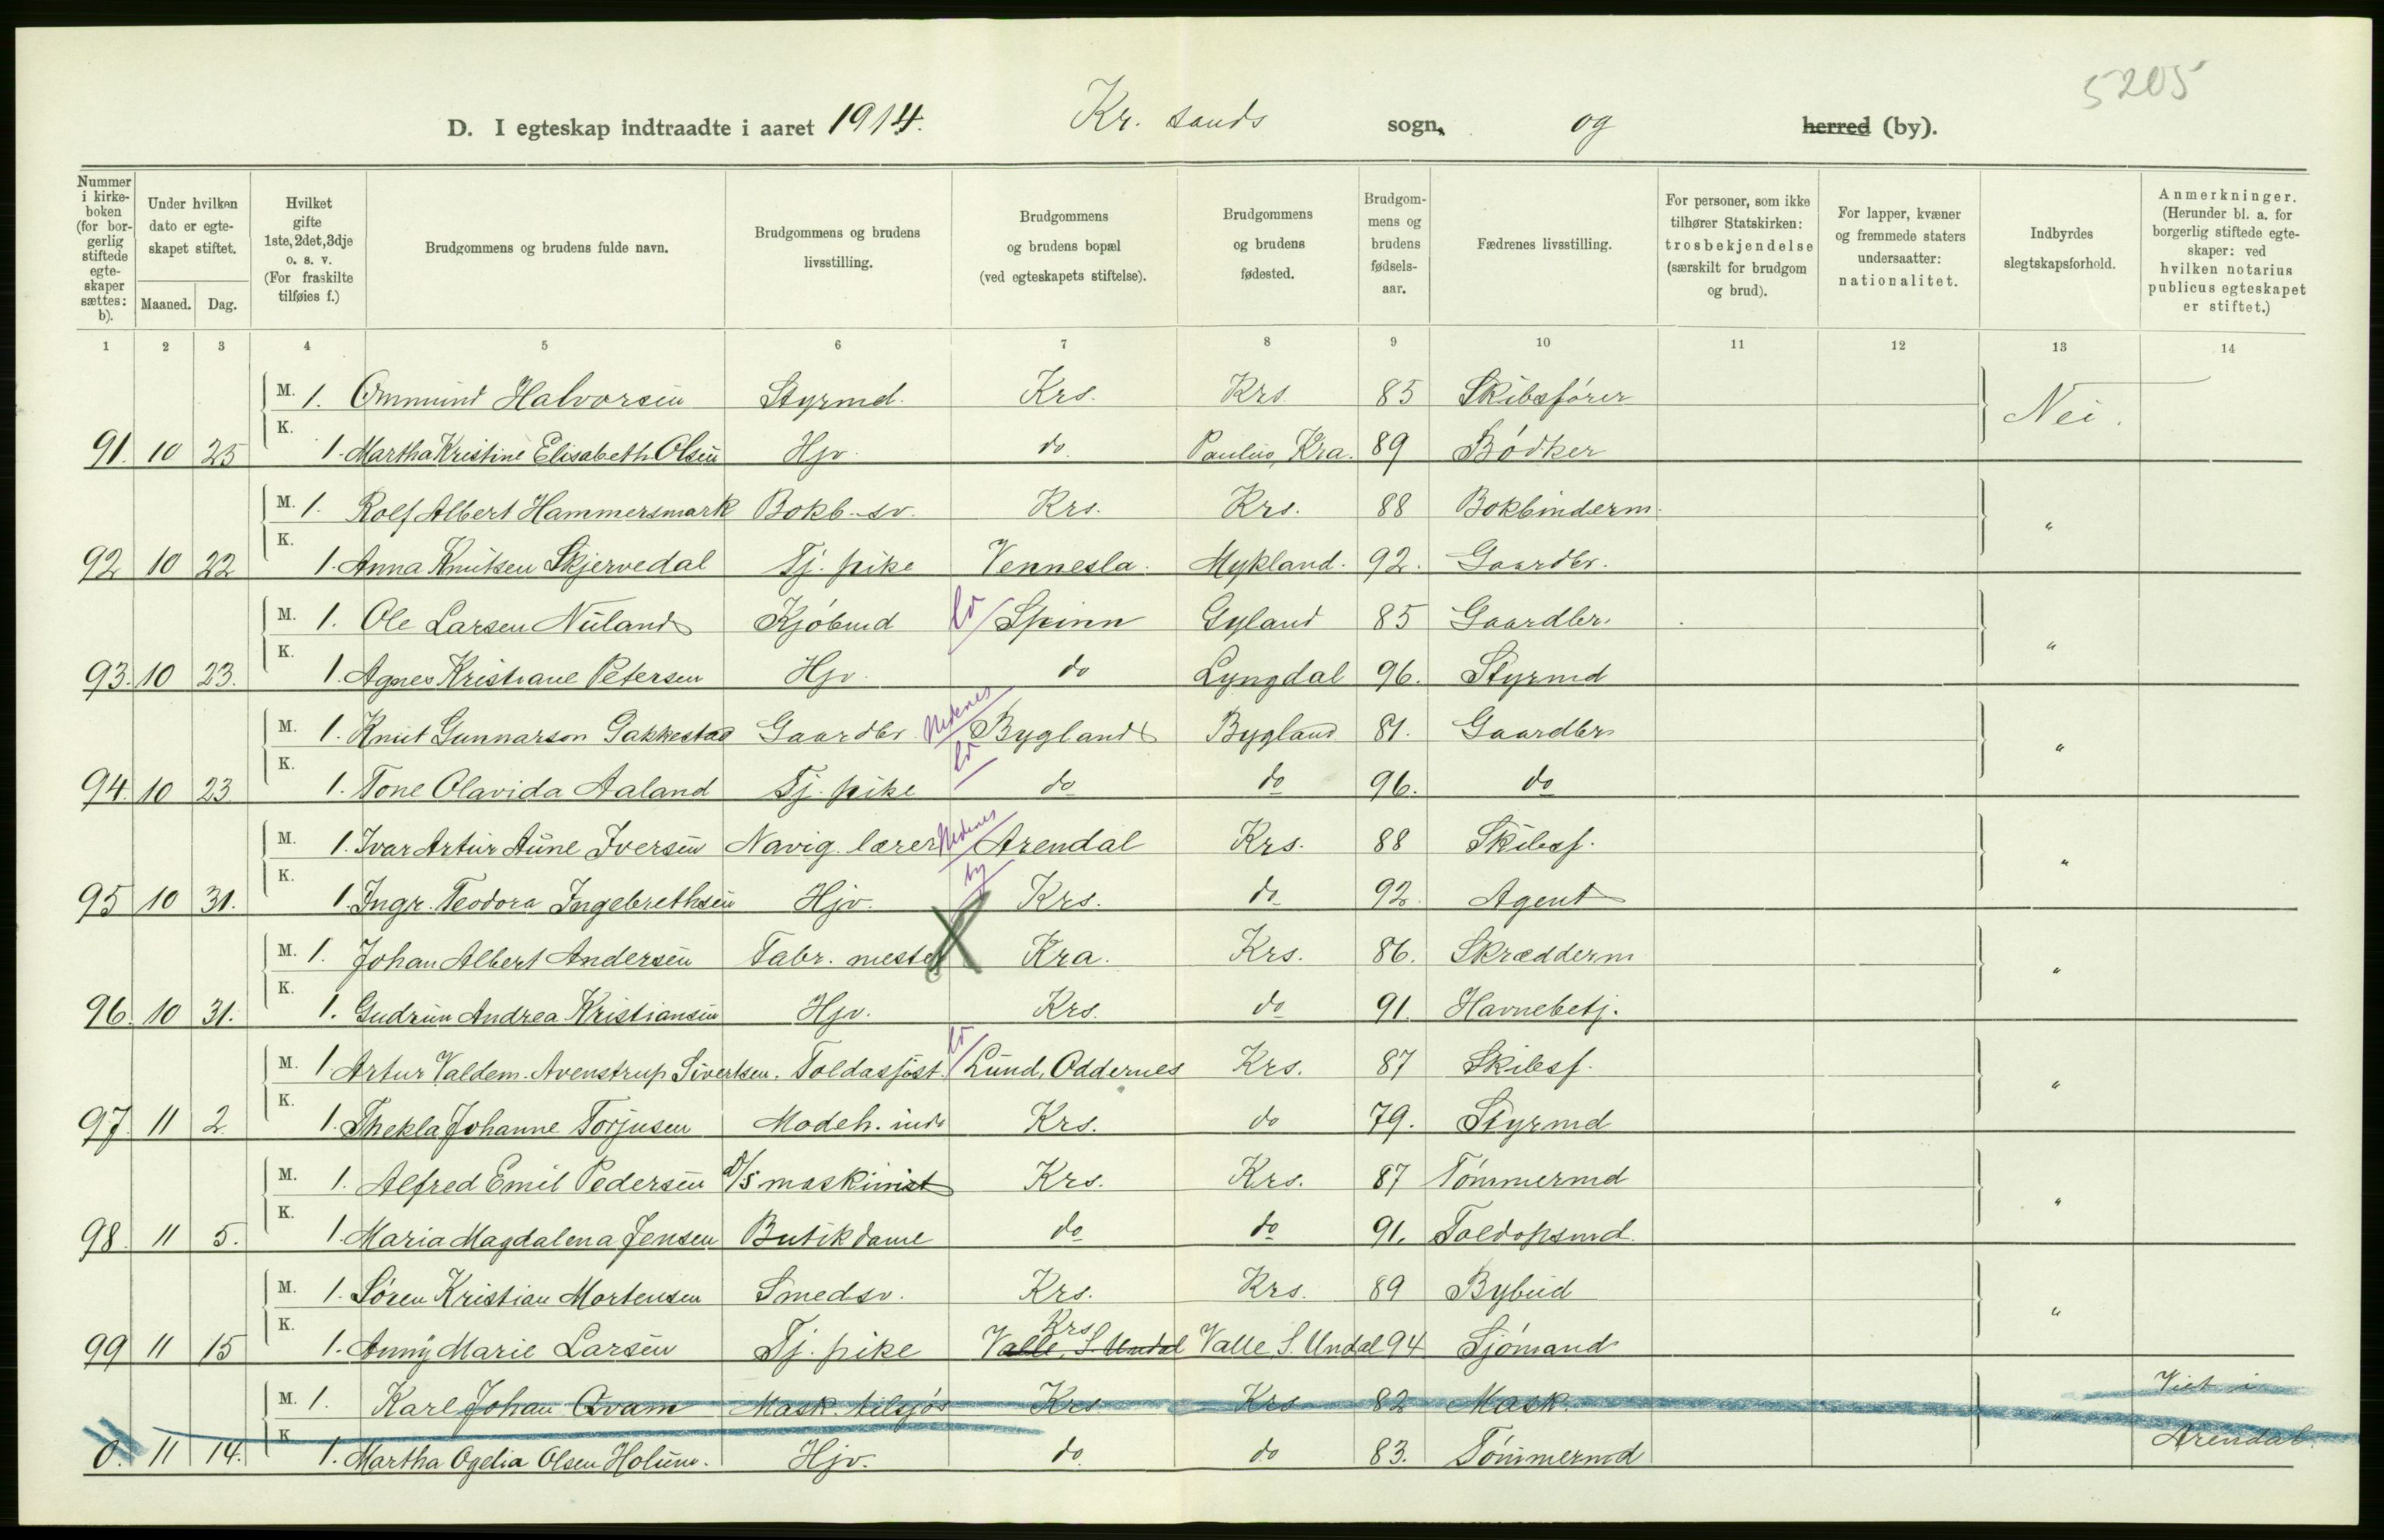 5205
D. I egteskap indtraadte i aaret 1914. Kr. sands sogn, og herred (by).
Nummer i kirkeboken (for borgerlig stiftede egteskaper sættes: b).
Under hvilken dato er egteskapet stiftet.
Maaned. Dag.
Hvilket gifte 1ste, 2det, 3dje o. s. v. (For fraskilte tilføies f.)
Brudgommens og brudens fulde navn.
Brudgommens og brudens livsstilling.
Brudgommens og brudens bopæl (ved egteskapets stiftelse).
Brudgommens og brudens fødested.
Brudgommens og brudens fødselsaar.
Fædrenes livsstilling.
For personer, som ikke tilhører Statskirken: trosbekjendelse (særskilt for brudgom og brud).
For lapper, kvæner og fremmede staters undersaatter: nationalitet.
Indbyrdes slegtskapsforhold.
Anmerkninger. (Herunder bl. a. for borgerlig stiftede egteskaper: ved hvilken notarius publicus egteskapet er stiftet.)
1 2 3 4 5 6 7 8 9 10 11 12 13 14
M. 1. Ommund Halvorsen Styrmd. Krs. Krs 85 Skibsfører Nei.
91. 10 25 K. 1. Martha Kristine Elisabeth Olsen Hjv. do Paulus, Kra. 89 Bødker
M. 1. Rolf Albert Hammersmark Bokb. sv. Krs. Krs. 88 Bokbinderm. "
92 10 22 K. 1. Anna Knutsen Skjervedal Tj. pike Vennesla. Mykland. 92. Gaardbr.
M. 1. Ole Larsen Nuland Kjøbmd ld Spinn Gyland 85 Gaardbr. "
93. 10 23. K. 1. Agnes Kristiane Petersen Hjv. do Lyngdal 96. Styrmd
M. 1. Knut Gunnarson Gakkestad Gaardbr. Nedenes Bygland Bygland 81. Gaardbr "
94. 10 23. K. 1. Tone Olavida Aaland Tj. pike ld do do 96. do
M. 1. Ivar Artur Aune Iversen Navig. lærer Nedenes Arendal Krs. 88 Skibsf. "
95 10 31. K. 1. Ingr. Teodora Ingebrethsen Hjv. by Krs. do 92. Agent
M. 1. Johan Albert Andersen Fabr. mester X Kra. Krs. 86. Skrædderm "
96. 10 31. K. 1. Gudrun Andrea Kristiansen Hjv. Krs. do 91. Havnebetj.
M. 1 Artur Valdem. Avenstrup Sivertsen. Toldassist. ld Lund, Oddernes Krs. 87 Skibsf. "
97. 11 2. K. 1. Thekla Johanne Torjusen Modeh. inde Krs. do 79. Styrmd
M. 1. Alfred Emil Pedersen D/S maskinist Krs. Krs. 87 Tømmermd "
98. 11 5. K. 1. Maria Magdalena Jensen Butikdame do do 91. Toldopsmd.
M. 1. Søren Kristian Mortensen Smedsv. Krs. Krs. 89 Bybud "
99 11 15 K. 1. Anny Marie Larsen Tj. pike Valle, S. Undal Krs Valle, S. Undal 94 Sjømand
M. 1. Karl Johan Qvam Mask. Krs Krs 82 Mask. " Viet i
0. 11 14. K 1. Martha Ogelia Olsen Holum. Hjv. do do 83. Tømmermd Arendal.